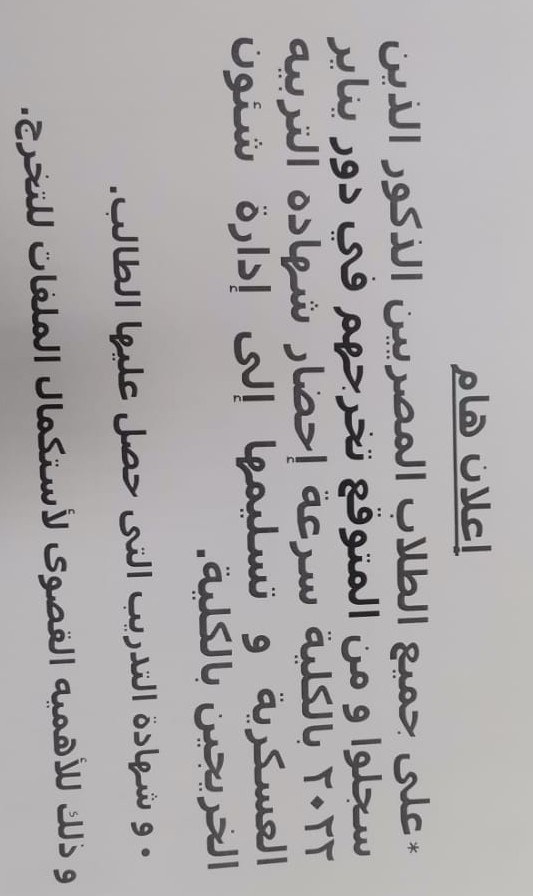 اعلان هام
*على جميع الطلاب المصريين الذكور الذين
سجلوا و من المتوقع تخرجهم في دور يناير
٢٠٢٢ بالكلية سرعة إحضار شهاده التربيه
العسكرية و تسليمها إلى إدارة شئون
الخريجين بالكلية.
• و شهادة التدريب التى حصل عليها الطالب.
و ذلك للأهميه القصوى لأستكمال الملفات للتخرج.